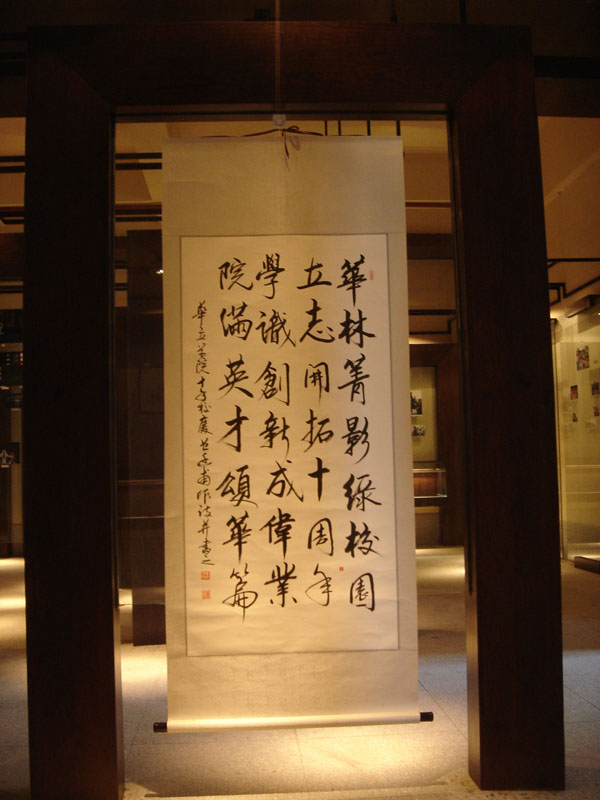 華林菁影綠校園
立志開拓十周年
學識創新成偉業
院滿英才頌華篇
華立學院十年校慶
作詩并書之